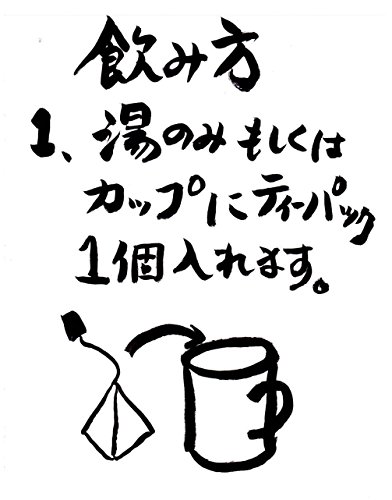 飲み方
1、湯のみもしくは
カップにティーパック
1個入れます。